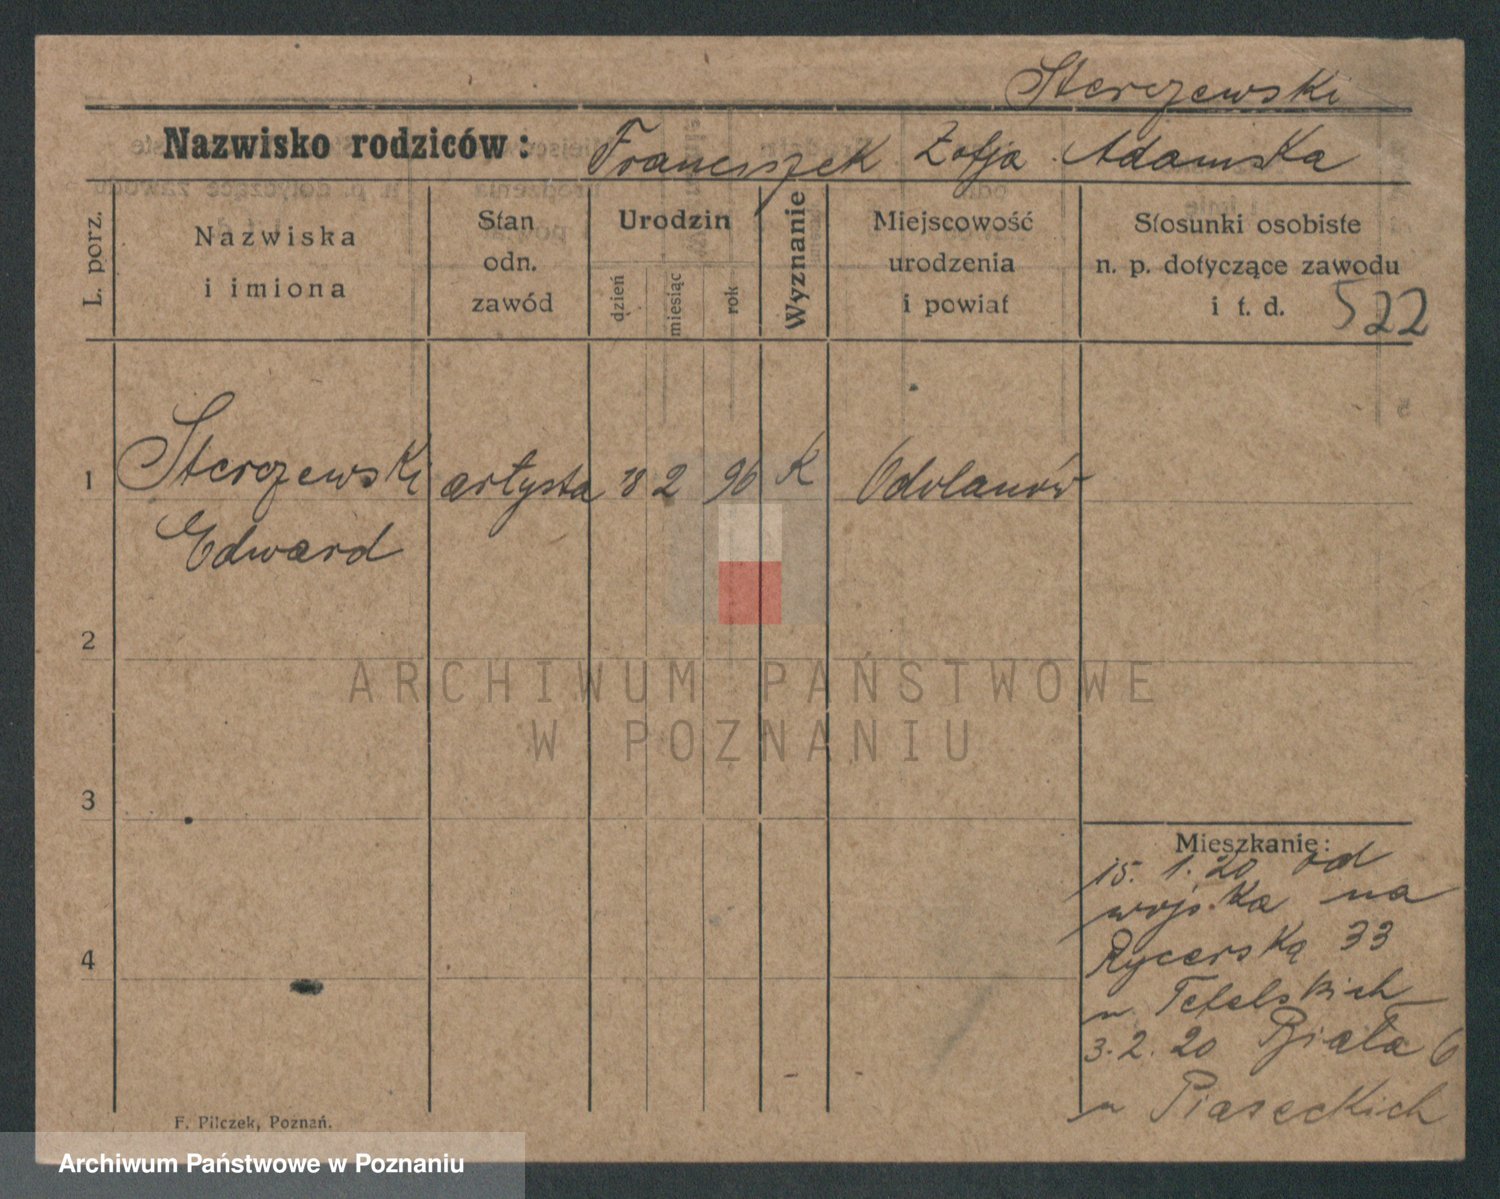 Sterczewski
Nazwisko rodziców: Franciszek Zofja Adamska
L. porz.
Nazwiska
i imiona
Stan
odn.
zawód
Urodzin
dzień
miesiąc
rok
Wyznanie
Miejscowość
urodzenia
i powiat
Stosunki osobiste
n. p. dotyczące zawodu
i t. d.
522
1 Sterczewski artysta 18 2 96 K Odolanów
Edward
2
3
4
Mieszkanie:
15. 1. 20 od
wojska na
Rycerską 33
u Tefelskich
3. 2. 20 Biała 6
u Piaseckich
F. Pilczek, Poznań.
ARCHIWUM PAŃSTWOWE
W POZNANIU
Archiwum Państwowe w Poznaniu